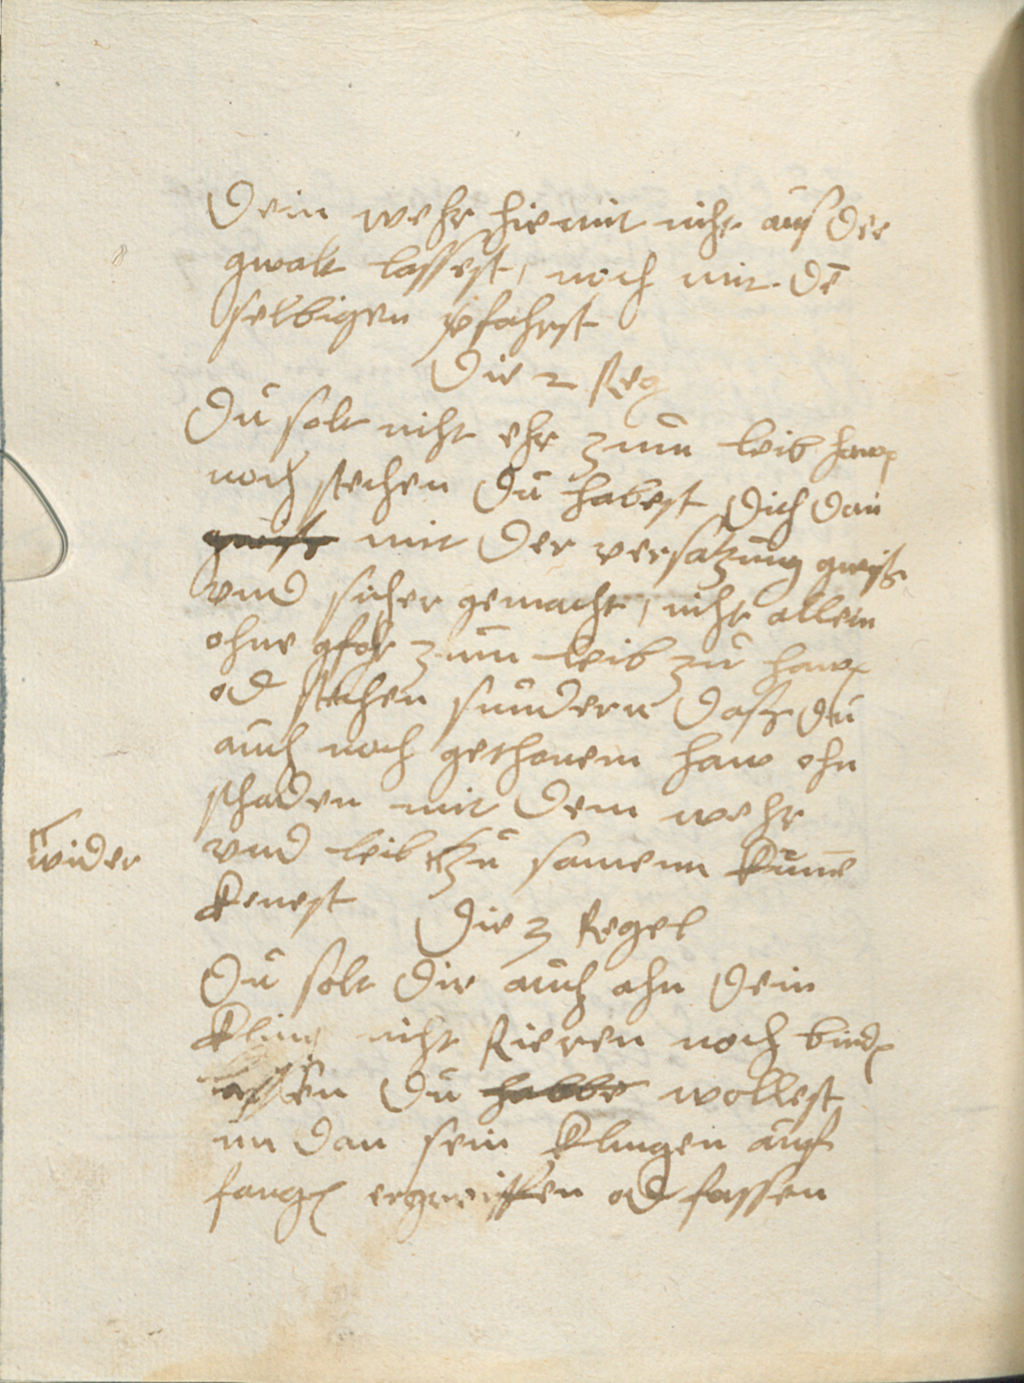 Dein wehr hiemit nicht aus der
gwalt lassest, noch mit de͂
selbigen verfahrst
Die 2 Reg
Du solt nicht ehr zum leib hawen
noch stechen du habest dich dan
gwiss mit der versatzung gwiss
vnd sicher gemacht, nicht allein
ohne gfohr zum leib zu hawen
od stechen sundern dass du
auch noch gethonem haw ohn
schaden mit dem wehr
wider
vnd leib zu samenn kume͂
kenest
Die 3 Regel
Du solt dir auch ahn dein
Kling nicht Rieren noch binden
lassen du habbe wollest
im dan sein Klingen auf
fangen ergreiffen od fassen